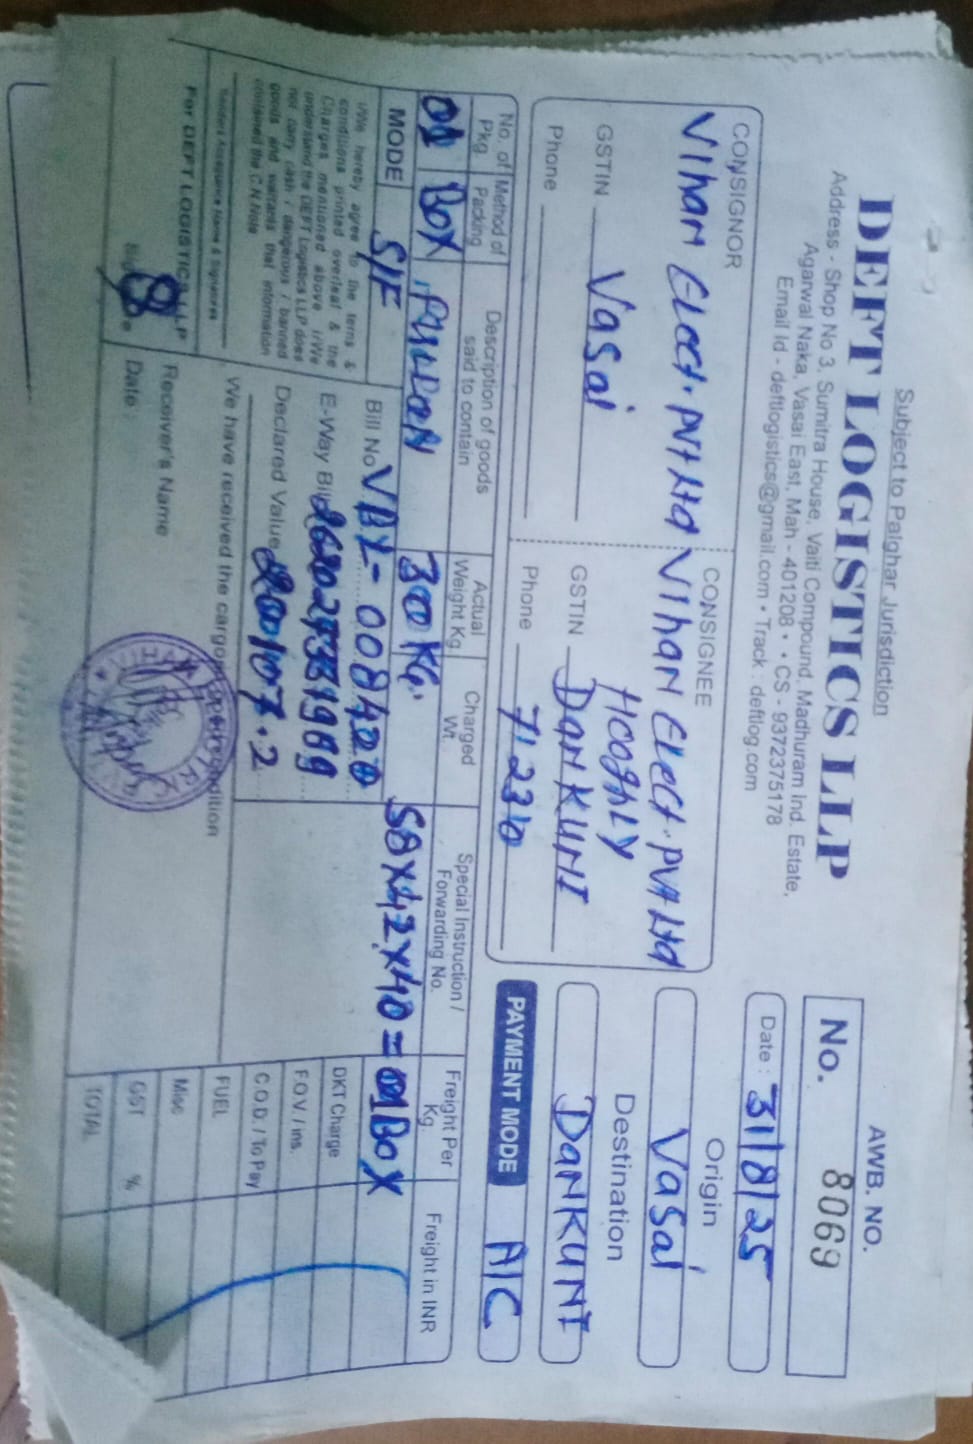 Subject to Palghar Jurisdiction
DEFT LOGISTICS LLP
Address - Shop No 3, Sumitra House, Vaiti Compound, Madhuram Ind. Estate,
Agarwal Naka, Vasai East, Mah - 401208 • • CS - 9372375178
Email Id - deftlogistics@gmail.com • Track : deftlog.com
AWB. NO.
No. 8069
Date : 31/8/25
CONSIGNOR
Vihan Elect. Pvt Ltd
GSTIN Vasai
Phone
CONSIGNEE
Vihan Elect. Pvt Ltd
Hooghly
GSTIN DanKuni
Phone 712310
Origin
Vasai
Destination
DanKuni
PAYMENT MODE A/C
No. of Pkg.
Method of Packing
Description of goods said to contain
Actual Weight Kg.
Charged Wt.
Special Instruction / Forwarding No.
Freight Per Kg.
Freight in INR
01 Box
300 Kg.
58x42x40 = 01 Box
MODE S/F
Bill No VBL-008420
E-Way Bill
Declared Value 200107.2
I/We hereby agree to the terns &
conditions printed overleaf & the
Charges mentioned above I/We
understand the DEFT Logistics LLP does
not carry cash / dangerous / banned
goods and warrants that information
contained the C.N.Note
Senders Acceptance Name & Signature
For DEFT LOGISTICS LLP
We have received the cargo
Receiver's Name
Date :
DKT Charge
F.O.V. / ins.
C.O.D. / To Pay
FUEL
Misc
GST %
TOTAL